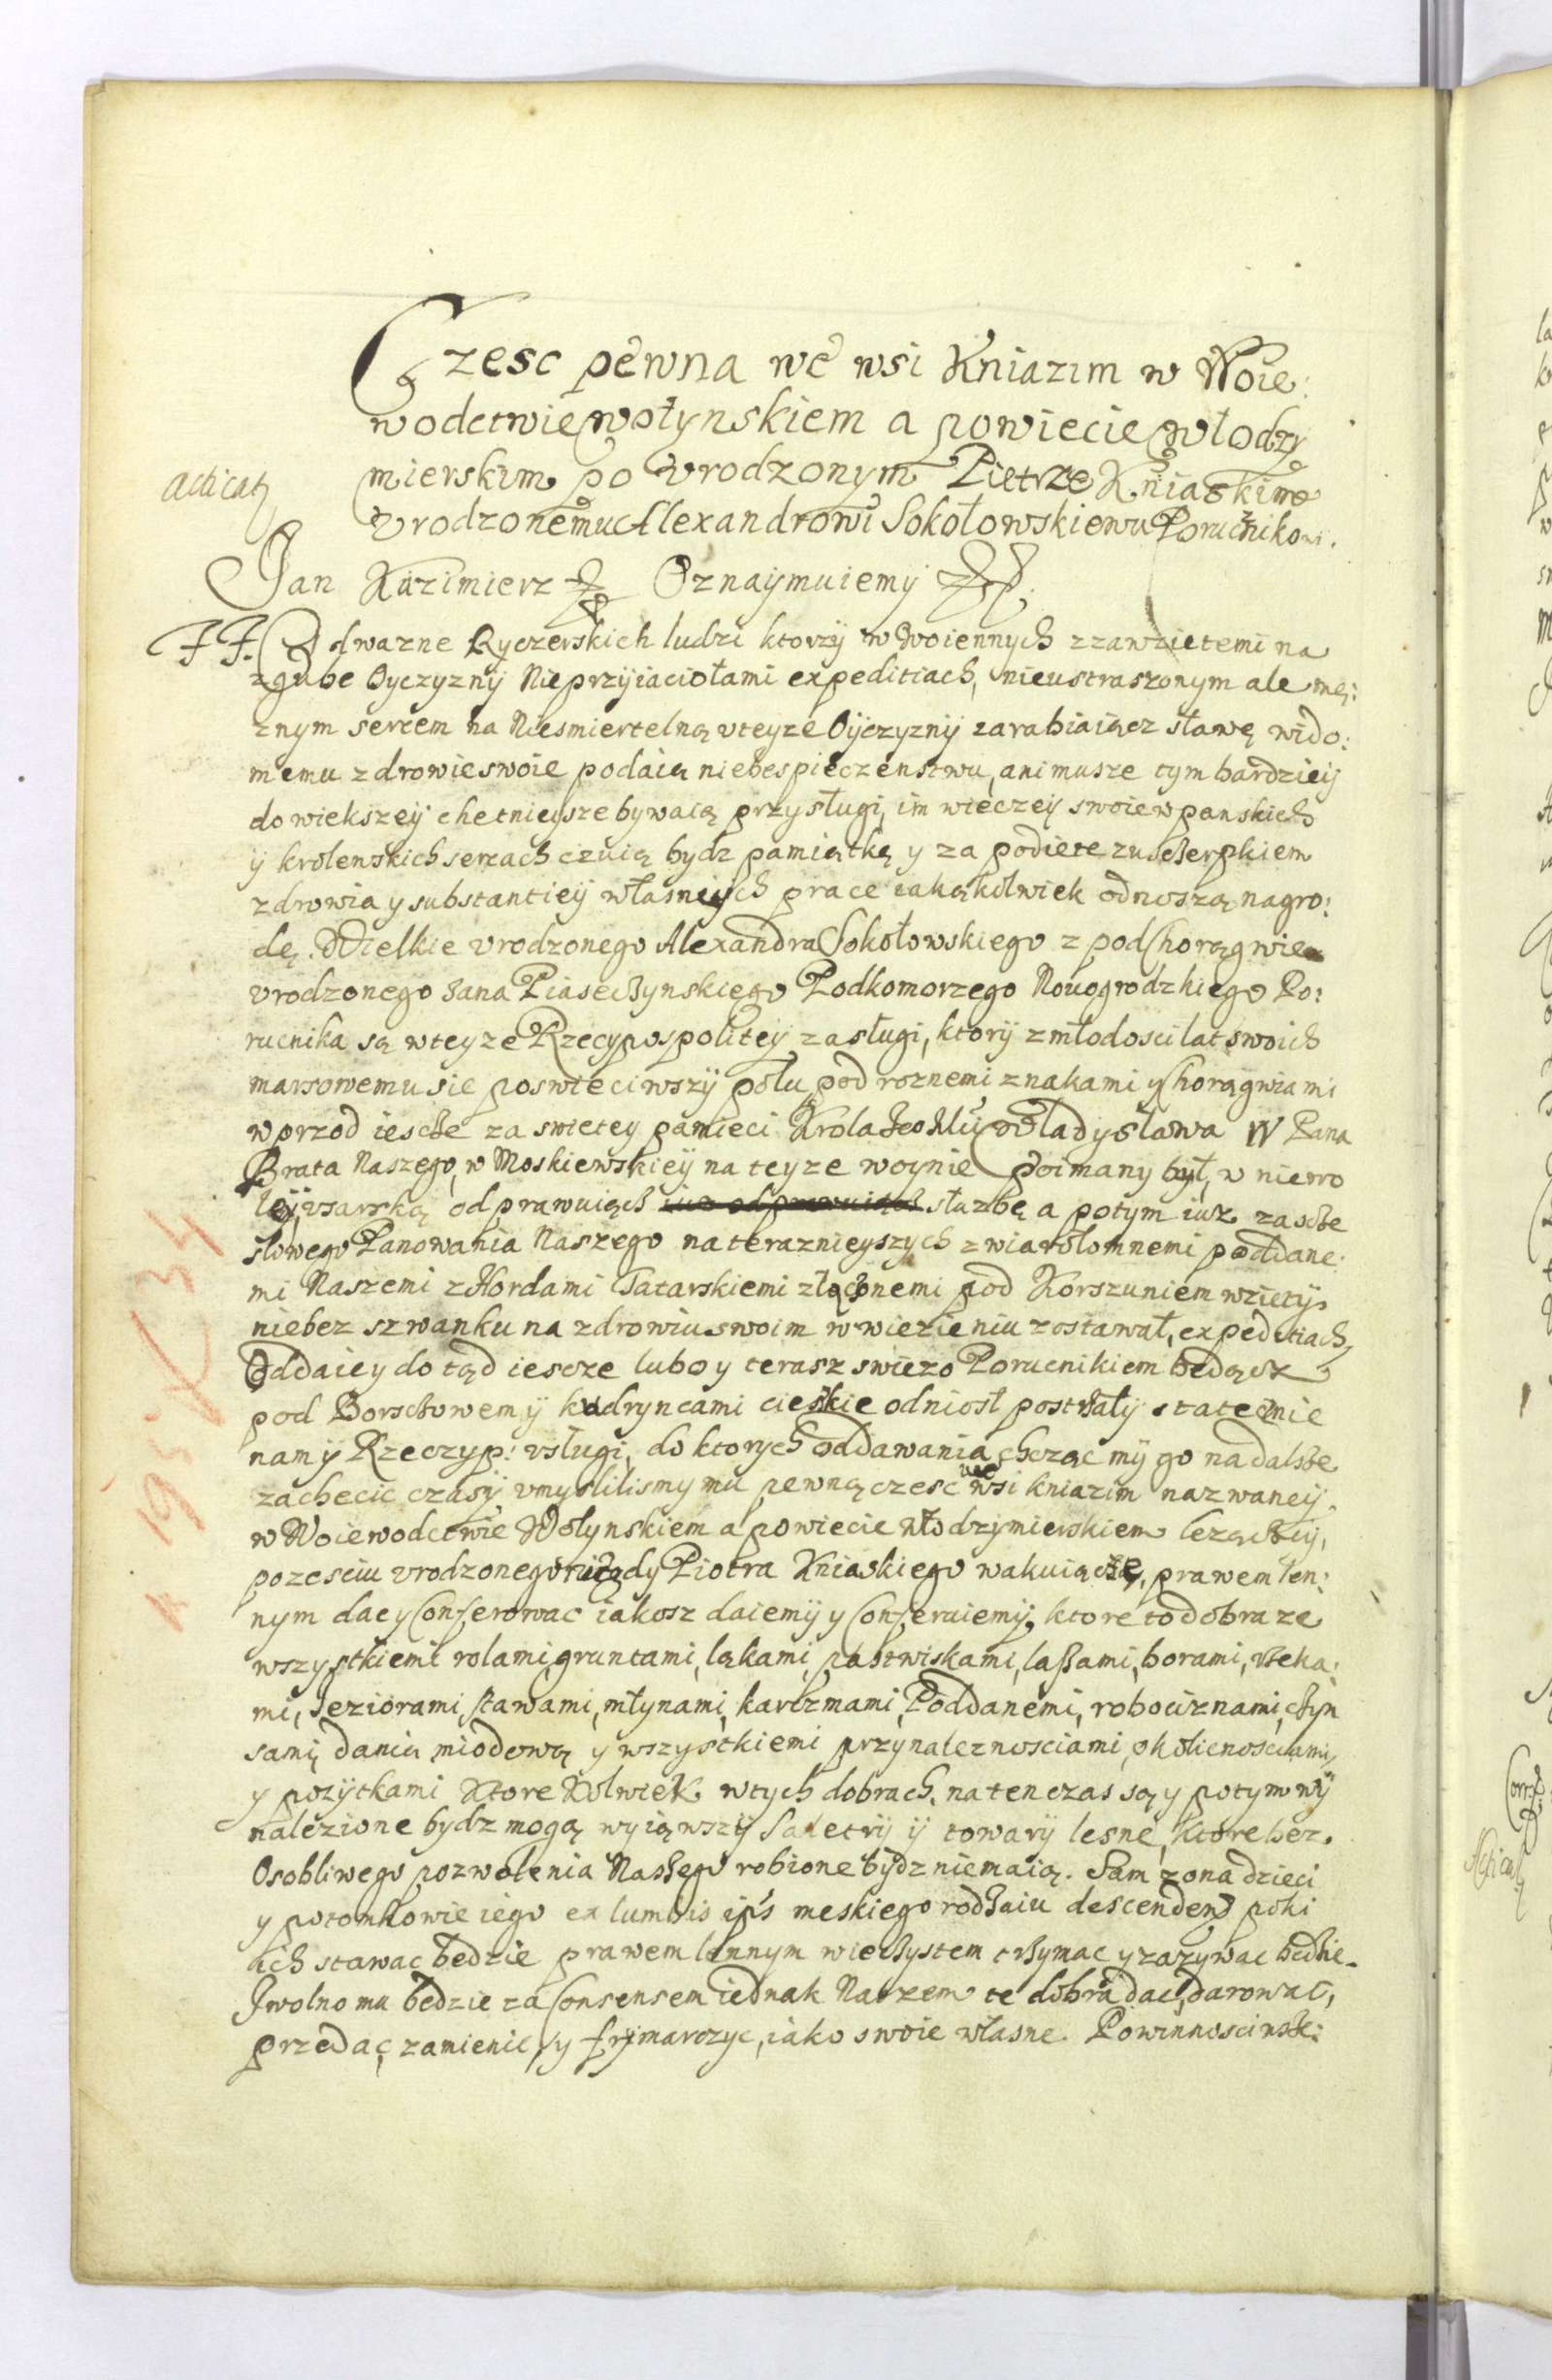 Czesc pewna we wsi Kniazim w Woie:
wodctwie wołynskiem a powiecie włodzy
mierskim po vrodzonym Pietrze Kniaskim
vrodzonemu Alexandrowi Sokołowskiemu Porucznikowi.
acticat
Jan Kazimierz Oznaymuiemy
Odwazne Ryczerskich ludzi ktorzy w woiennych z zawzietemi na
zgube Oyczyzny Nieprzyiaciołami expeditiach, nieustraszonym ale mę:
znym sercem na Niesmiertelną vteyze Oyczyzny zarabiaiącz sławę wido:
memu zdrowie swoie podaią niebespieczenstwu, animusze tym bardziey
do wiekszey chetnieysze bywaią przysługi, im wieczey swoie w panskich
y krolenskich sercach czuią bydz pamiątką y za podiete z uscherpkiem
zdrowia y substantiey własnych prace iakąkolwiek odnoszą nagro:
dę. Wielkie vrodzonego Alexandra Sokołowskiego z pod Chorągwie
vrodzonego Jana Piaseczynskiego Podkomorzego Nouogrodzkiego Po:
rucnika są wteyze Rzecypospolitey zasługi, ktory z młodosci lat swoich
marsowemu sie poswieciwszy polu, pod roznemi znakami y Chorągwiami
wprzod iescze za swietey pamieci Krola Jeo Mci Władysława IV Pana
Brata Naszego, w Moskiewskiey na teyze woynie poimany był, w niewo
ley, vsarską odprawuiąch iuz odprawuiąch słuzbę a potym iuz za scze
sliwego Panowania Naszego na teraznieyszych z wiarołomnemi poddane:
mi Naszemi z Hordami Tatarskiemi złączonemi pod Korszuniem wziety
niebez szwanku na zdrowiu swoim w wiezieniu zostawał, expeditiach,
Oddaiey do tąd iescze lubo y terasz swiezo Porucnikiem będącz
pod Borsczowem y kudryncami cieskie odniosł postrzały statecznie
nam y Rzeczyp: vsługi, do ktorych oddawania chcząc my go na dalsze
zachecic czasy vmyslilismy mu pewną czesc we wsi kniazim nazwaney.
w Woiewodctwie Wołynskiem a powiecie włodzymierskiem lezączey,
po zesciu vrodzonego niegdy Piotra Kniaskiego wakuiączę, prawem len:
nym dac y Conferowac iakosz daiemy y Conferuiemy, ktore to dobra ze
wszystkiemi rolami, gruntami, łąkami, pastwiskami, laßami, borami, rzeka:
mi, Jeziorami, stawami, młynami, karczmami, Poddanemi, robociznami, czyn
sami, danią miodową y wszystkiemi przynaleznosciami, okolicnosciami,
y pozytkami Ktore Kolwiek w tych dobrach, na ten czas są y potym wy
nalezione bydz mogą wyiąwszy Saletry y towary lesne, ktore bez
Osobliwego pozwolenia Naszego robione bydz niemaią. Sam zona dzieci
y potomkowie iego ex lumbis ip's meskiego rodzaiu descenden poki
ich stawac bedzie prawem lennym wieczystem trzymac y zazywac bedzie.
Iwolno mu bedzie za Consensem iednak Naszem te dobra dac, darowac,
przedac, zamienic, y frymarczyc, iako swoie własne. Powinnosci wsze: